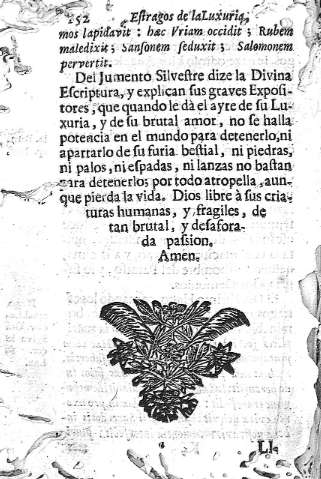 252 Estragos de la Luxuria,
mos lapidavit : hæc Vriam occidit ; Rubem
maledixit ; Sansonem seduxit ; Salomonem
pervertit.
Del Jumento Silvestre dize la Divina
Escriptura, y explican sus graves Exposi-
tores, que quando le dà el ayre de su Lu-
xuria, y de su brutal amor, no se halla
potencia en el mundo para detenerlo, ni
apartarlo de su furia bestial, ni piedras,
ni palos, ni espadas, ni lanzas no bastan
para detenerlo; por todo atropella, aun-
que pierda la vida. Dios libre à sus cria-
turas humanas, y fragiles, de
tan brutal, y desafora-
da passion.
Amen.
Ll.